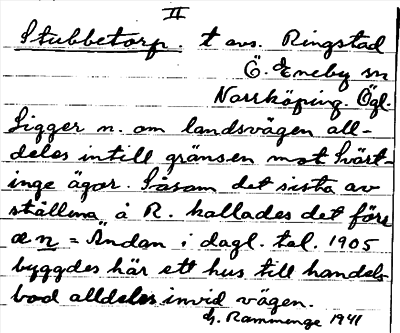 II
Stubbetorp. t avs. Ringstad
Ö. Eneby sn
Norrköping. Ögl.
Ligger n. om landsvägen all-
deles intill gränsen mot Svärt-
inge ägor. Såsom det sista av
ställena å R. kallades det förr
æn = Ändan i dagl. tal. 1905
byggdes här ett hus till handels-
bod alldeles invid vägen.
Hj. Rammenge 1941